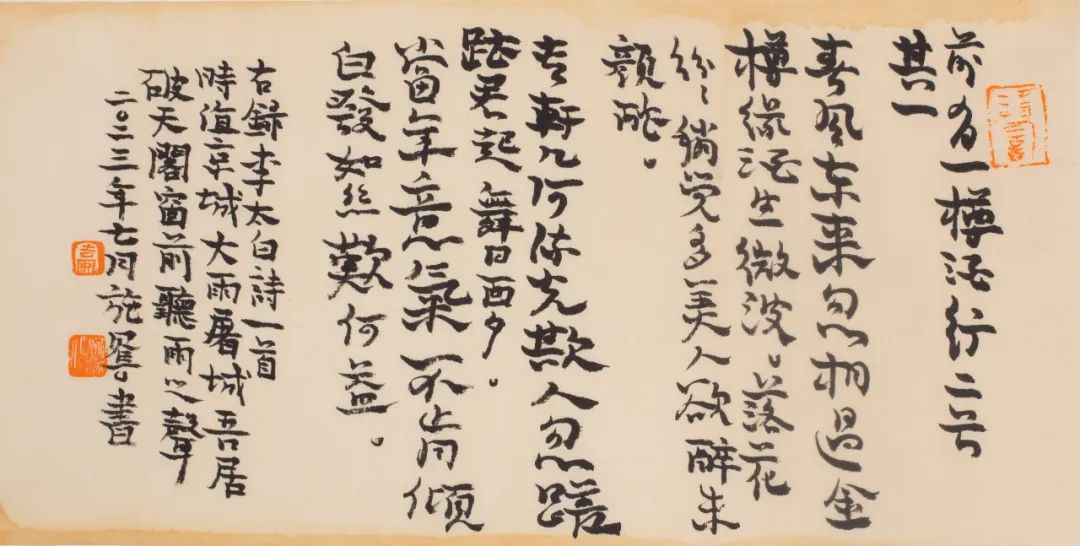 前有一樽酒行二首
其一
春風东来忽相過金
樽緑酒生微波。落花
纷々稍觉多美人欲醉朱
颜酡。
青軒几何流光欺人忽蹉
跎君起舞日西夕。
當年意氣不肯傾
白發如絲歎何益。
右録李太白詩一首
時值京城大雨屠城吾居
破天閣窗前聽雨之聲
二〇二三年七月施書